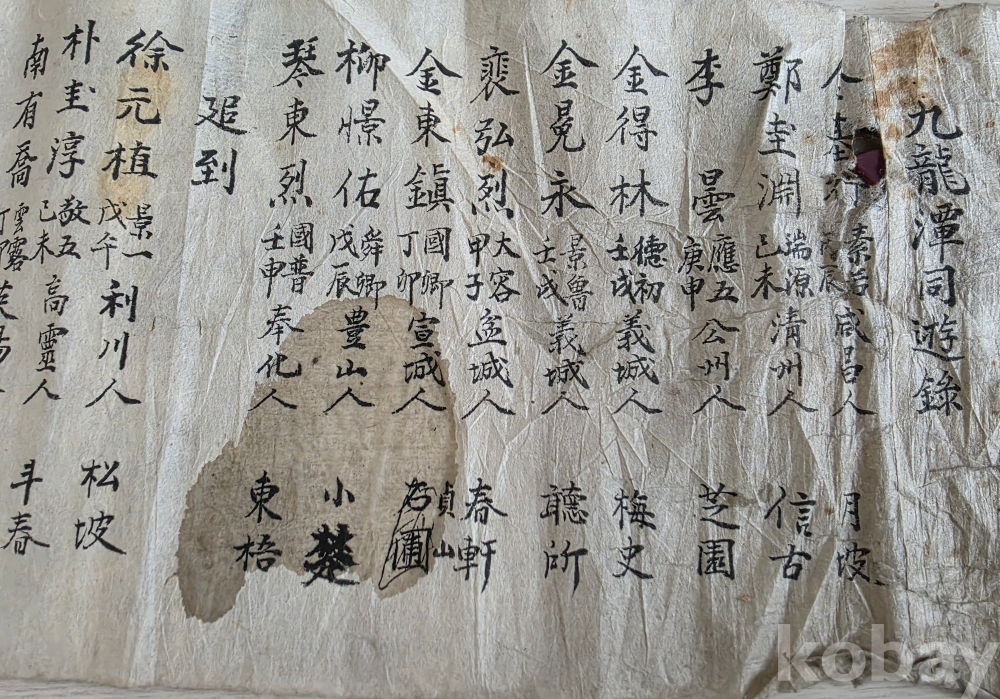 九龍潭同遊錄
行 素 辰 咸昌人 月坡
鄭圭淵 端源 己未 淸州人 信古
李曇 應五 庚申 公州人 芝園
金得林 德初 壬戌 義城人 梅史
金晃永 景魯 壬戌 義城人 聽所
裵弘烈 大容 甲子 盆城人 春軒
金東鎭 國卿 丁卯 宣城人 貞山
柳憬佑 舜卿 戊辰 豊山人 小楚
琴東烈 國普 壬申 奉化人 東梧
追到
徐元植 景一 戊午 利川人 松坡
朴圭淳 敬五 己未 高靈人 斗春
南有喬 雲霄 丁卯 英陽
kobay